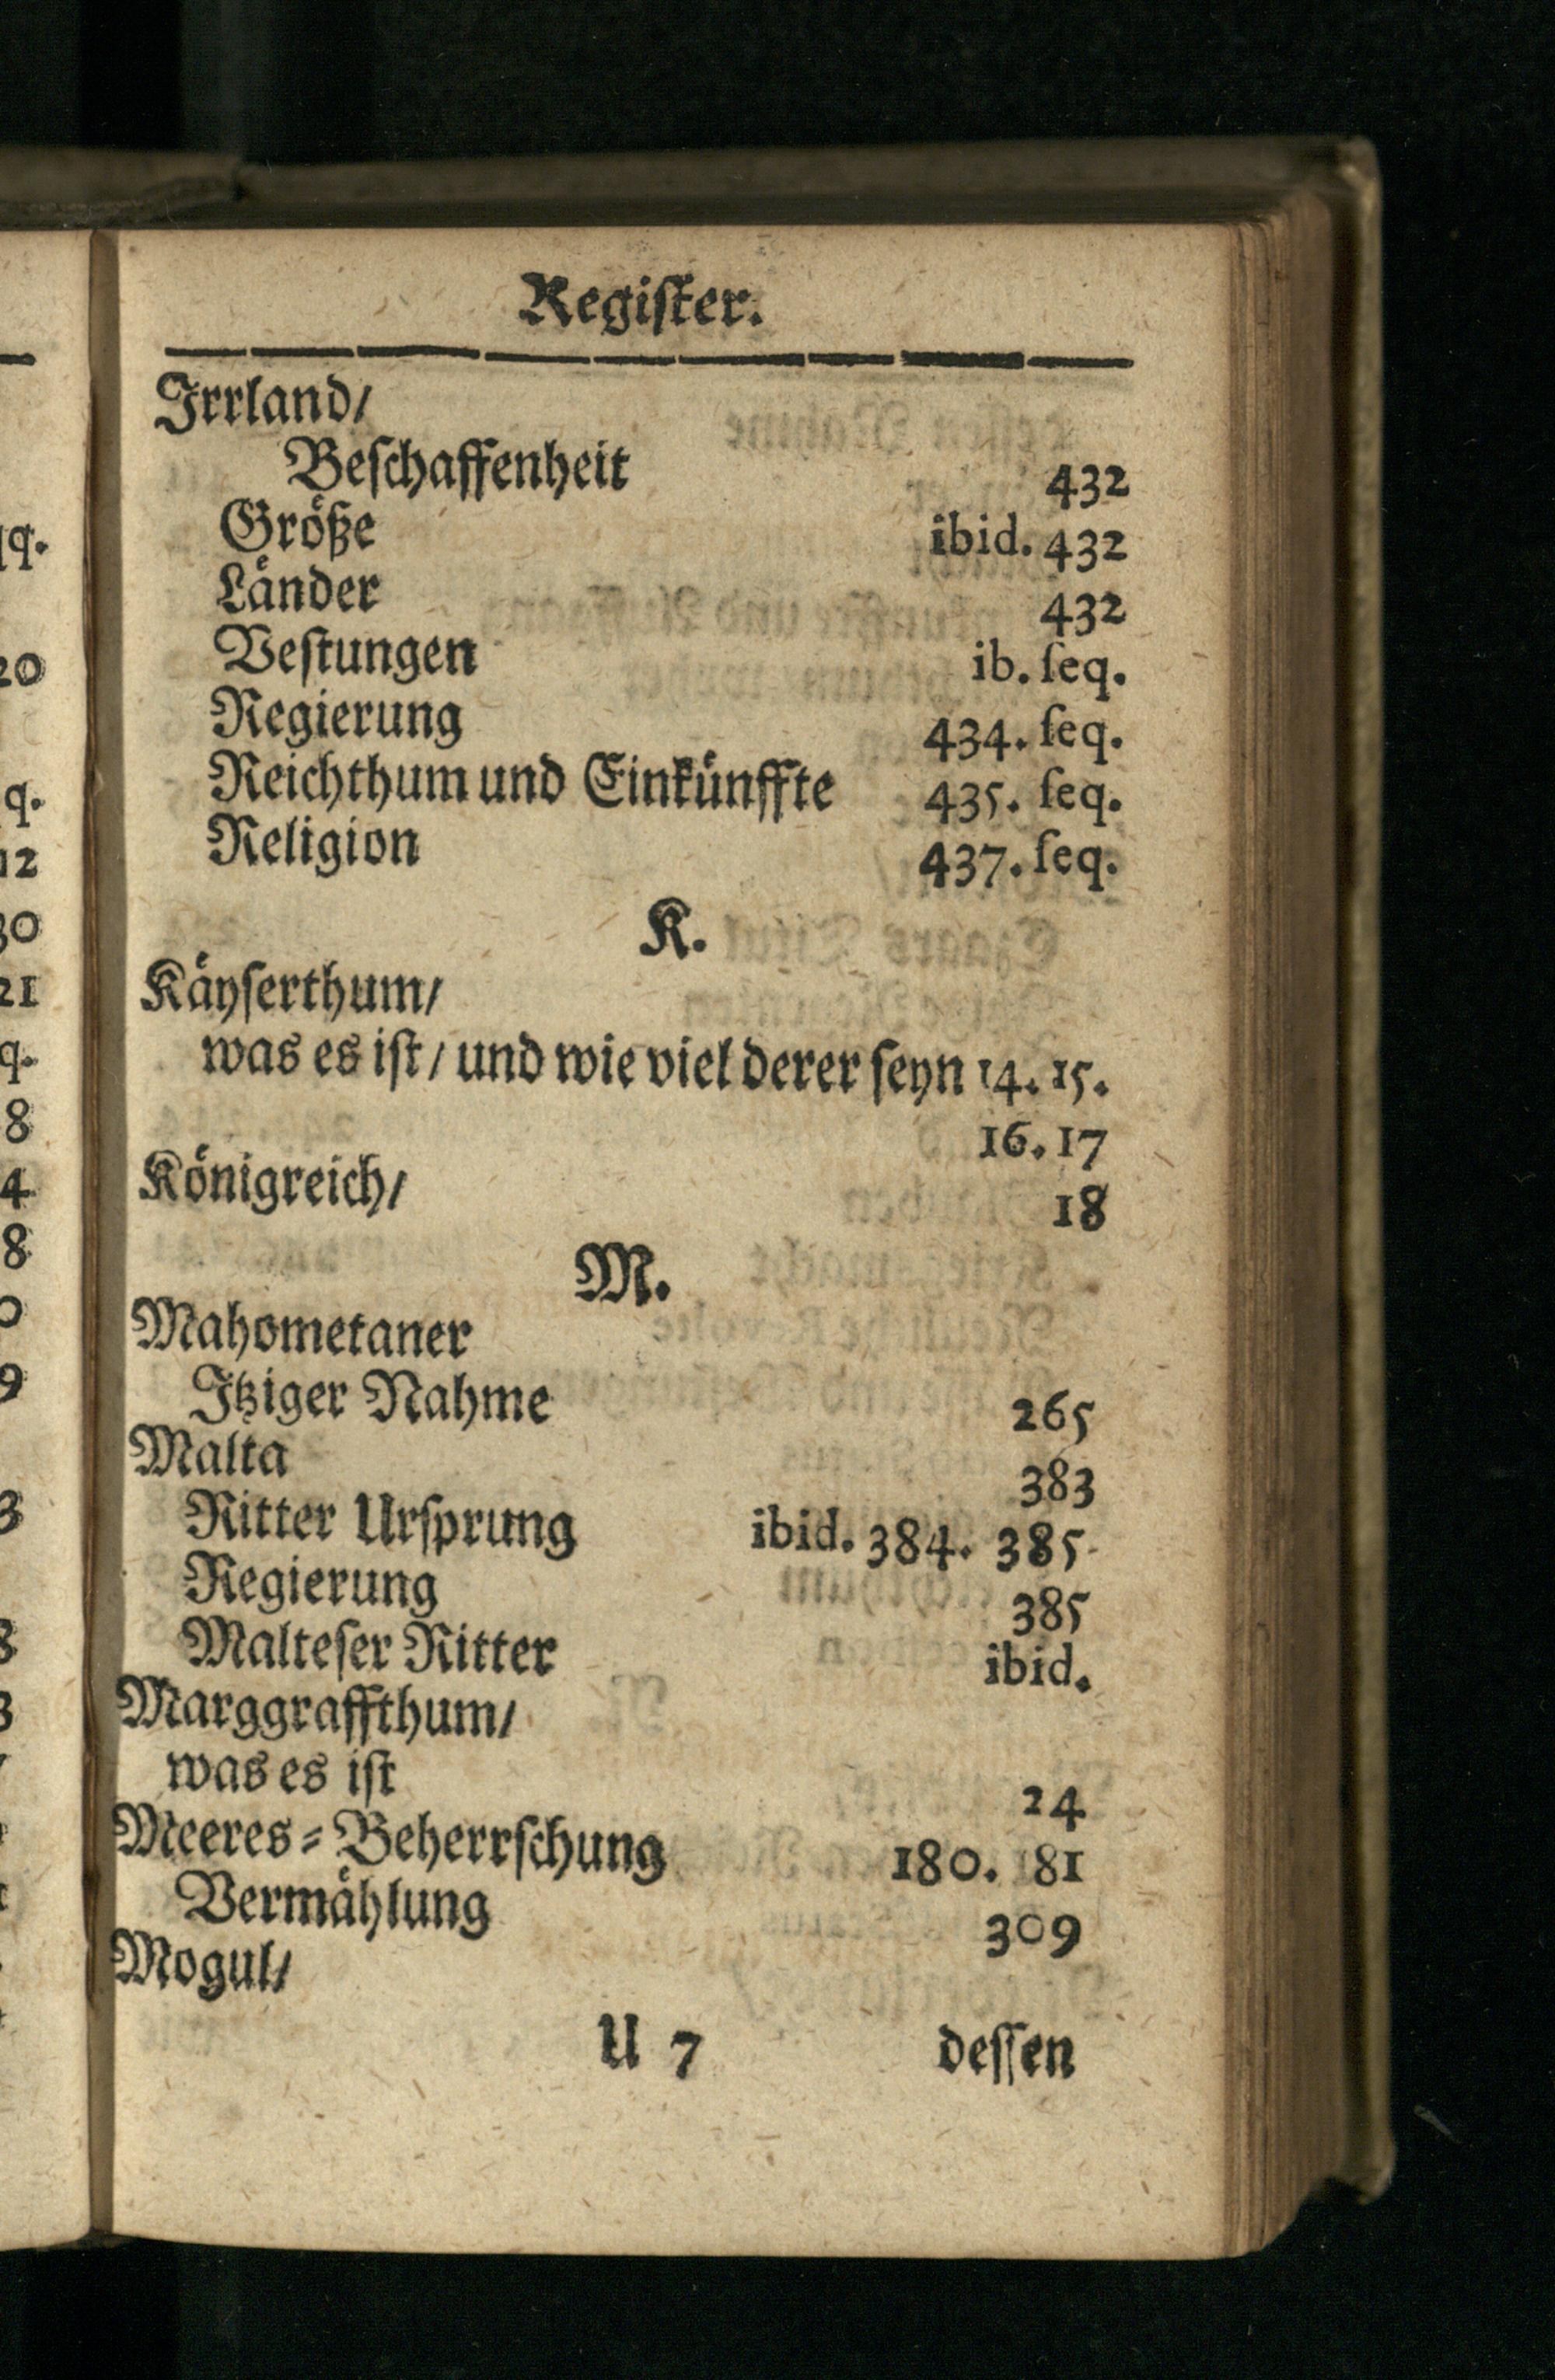 Register.
Irrland/
Beſchaffenheit 432
Größe ibid. 432
Länder 432
Veſtungen ib. ſeq.
Regierung 434. ſeq.
Reichthum und Einkünffte 435. ſeq.
Religion 437. ſeq.
K.
Käyſerthum/
was es iſt / und wie viel derer ſeyn 14. 15.
16. 17
Königreich/ 18
M.
Mahometaner
Itziger Nahme 265
Malta 383
Ritter Urſprung ibid. 384. 385
Regierung 385
Malteſer Ritter ibid.
Marggraffthum/
was es iſt 24
Meeres-Beherrſchung 180. 181
Vermählung 309
Mogul/
U 7 deſſen